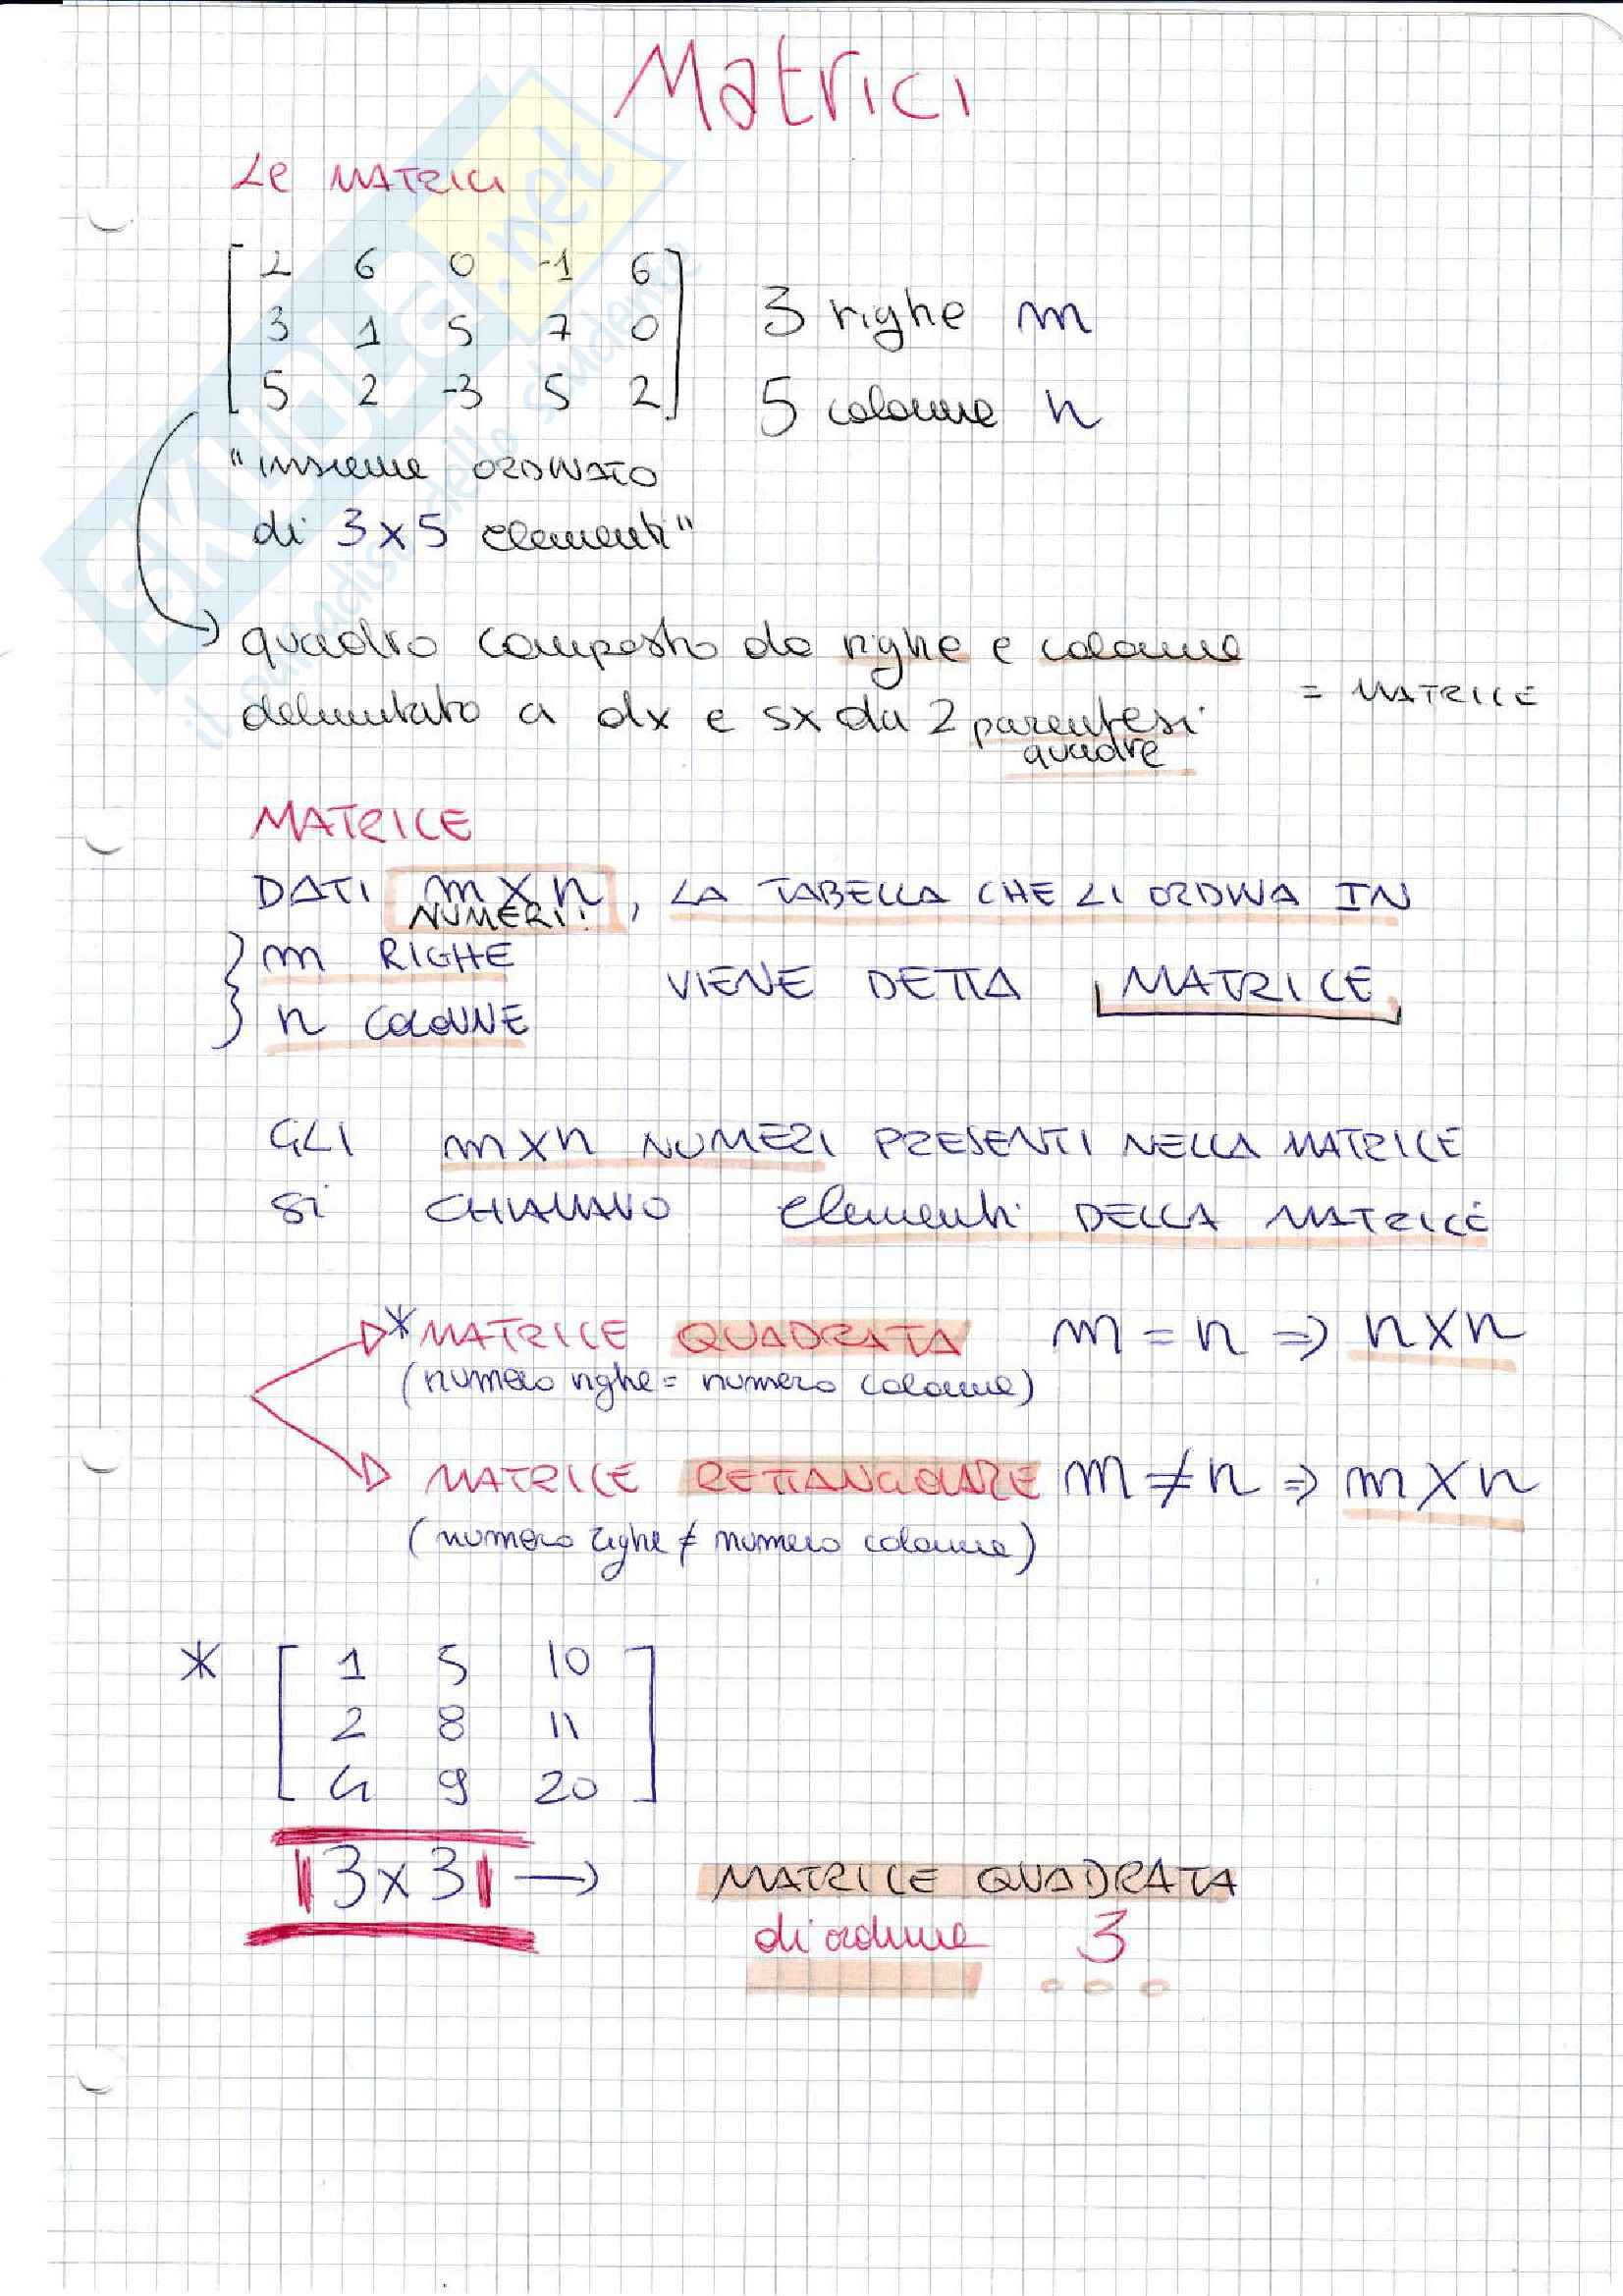 Matrici
Le MATRICI
2 6 0 -1 6
3 1 5 7 0
5 2 -3 5 2
3 righe m
5 colonne n
"insieme ORDINATO
di 3x5 elementi"
quadro composto da righe e colonne
delimitato a dx e sx da 2 parentesi
quadre
= MATRICE
MATRICE
DATI m x n , LA TABELLA CHE LI ORDINA IN
NUMERI!
m RIGHE
n COLONNE
VIENE DETTA MATRICE
GLI m x n NUMERI PRESENTI NELLA MATRICE
Si CHIAMANO elementi DELLA MATRICE
* MATRICE QUADRATA m = n ⇒ n x n
(numero righe = numero colonne)
MATRICE RETTANGOLARE m ≠ n ⇒ m x n
(numero righe ≠ numero colonne)
* 1 5 10
2 8 11
4 9 20
3x3 → MATRICE QUADRATA
di ordine 3
SKUOLA.net
il paradiso dello studente